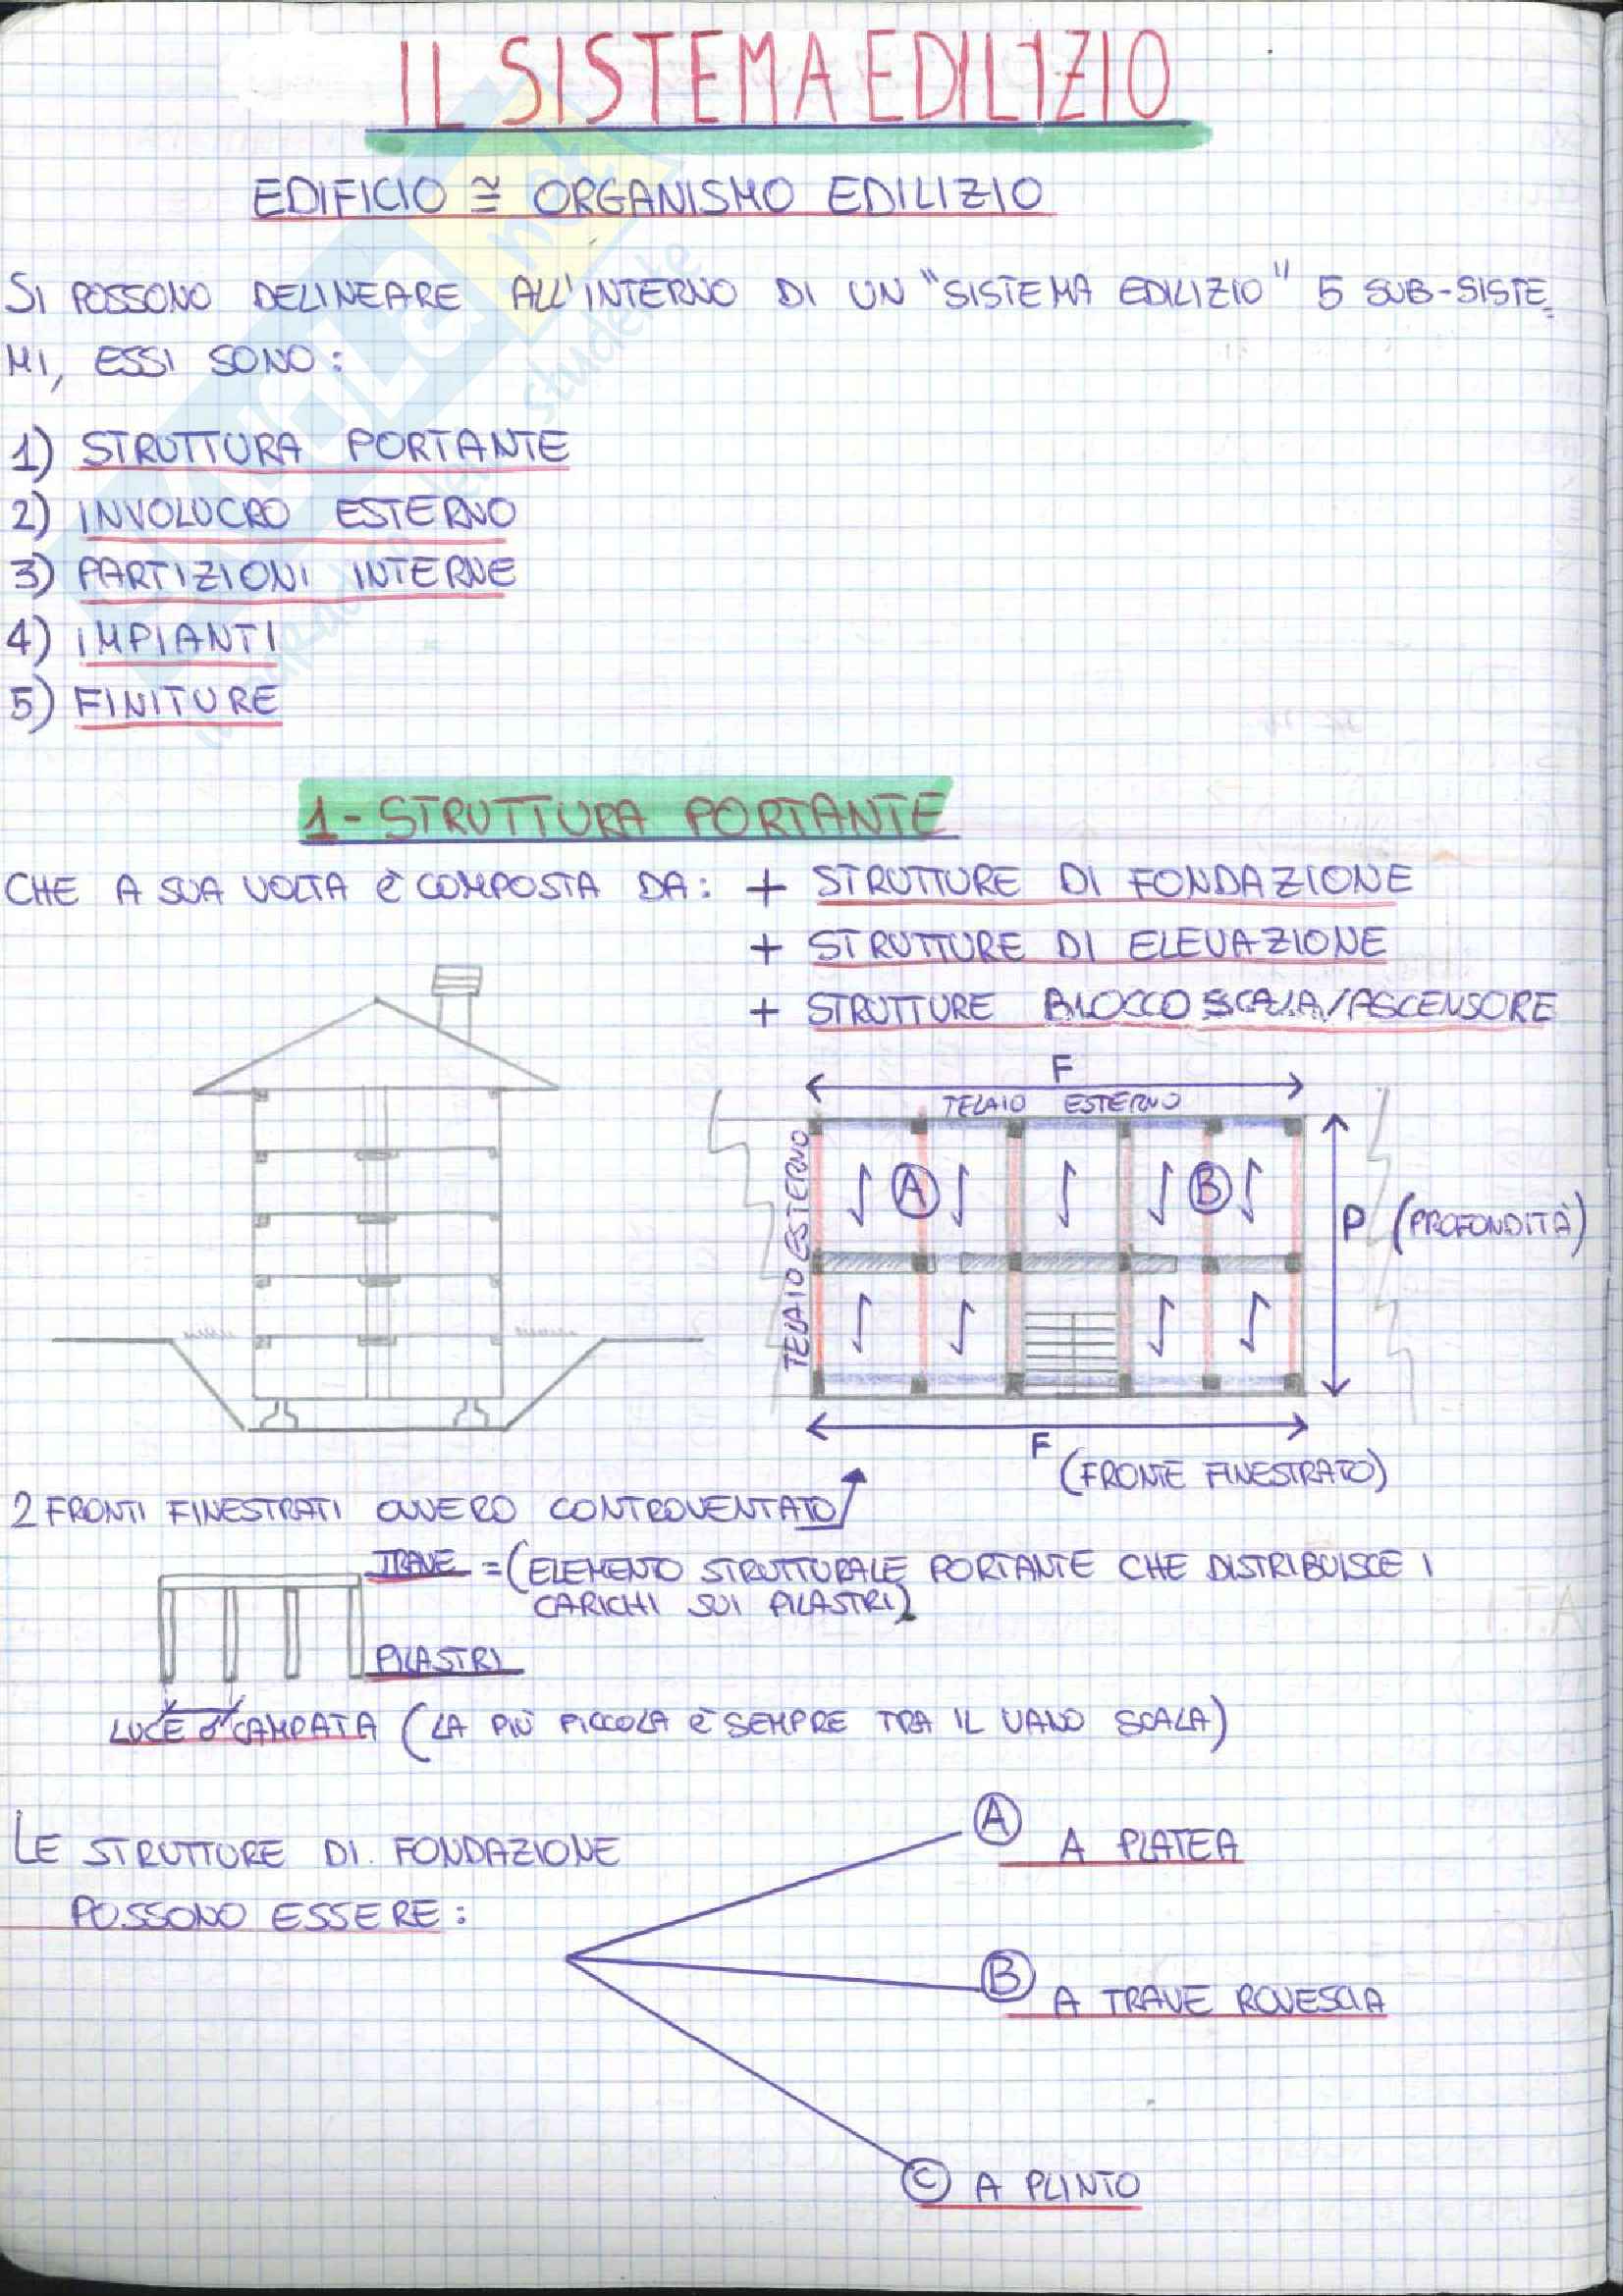 IL SISTEMA EDILIZIO
EDIFICIO ≅ ORGANISMO EDILIZIO
SI POSSONO DELINEARE ALL'INTERNO DI UN "SISTEMA EDILIZIO" 5 SUB-SISTE
MI, ESSI SONO:
1) STRUTTURA PORTANTE
2) INVOLUCRO ESTERNO
3) PARTIZIONI INTERNE
4) IMPIANTI
5) FINITURE
1- STRUTTURA PORTANTE
CHE A SUA VOLTA È COMPOSTA DA: + STRUTTURE DI FONDAZIONE
+ STRUTTURE DI ELEVAZIONE
+ STRUTTURE BLOCCO SCALA/ASCENSORE
F
TELAIO ESTERNO
TELAIO ESTERNO
A
B
P (PROFONDITÀ)
F (FRONTE FINESTRATO)
2 FRONTI FINESTRATI OVVERO CONTROVENTATO
TRAVE = (ELEMENTO STRUTTURALE PORTANTE CHE DISTRIBUISCE I
CARICHI SUI PILASTRI)
PILASTRI
LUCE o CAMPATA (LA PIÙ PICCOLA È SEMPRE TRA IL VANO SCALA)
LE STRUTTURE DI FONDAZIONE
POSSONO ESSERE:
A A PLATEA
B A TRAVE ROVESCIA
C A PLINTO
skuola.net